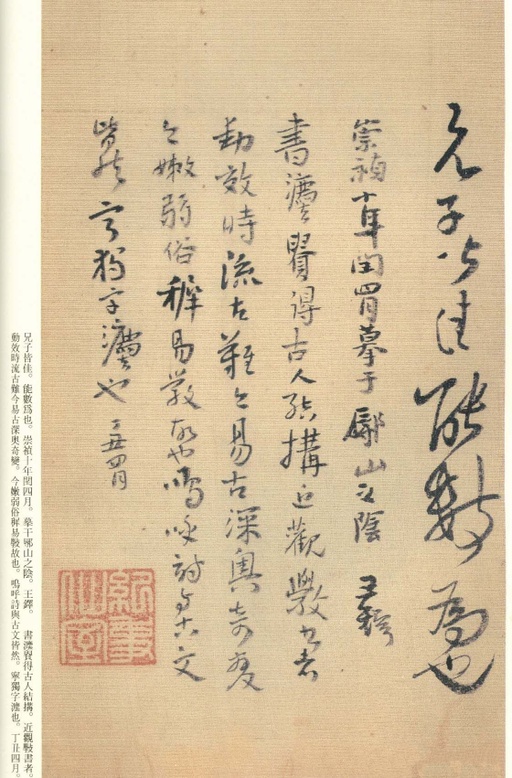 兄子皆佳能數為也
崇禎十年閏四月摹于山之陰 王鐸
書灋貴得古人結搆近觀斆書者
動效時流古難今易古深奧奇變
今嫩弱俗稺易斆故也嗚呼詩與古文
皆然寧獨字灋也 丁丑四月
兄子皆佳。能數爲也。崇禎十年閏四月。摹于山之陰。王鐸。 書灋貴得古人結搆。近觀斆書者。
動效時流古難今易古深奧奇變。今嫩弱俗稺易斆故也。嗚呼詩與古文皆然。寧獨字灋也。丁丑四月。